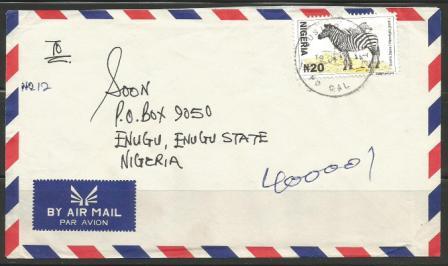 TO
NIGERIA
₦20
NO 12
SOON
P.O. BOX 9050
ENUGU, ENUGU STATE
NIGERIA
400001
BY AIR MAIL
PAR AVION